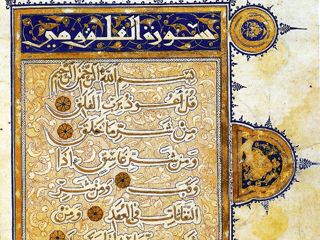 سورة الفلق وهي
بسم الله الرحمن الرحيم
قل أعوذ برب الفلق
من شر ما خلق
ومن شر غاسق إذا
وقب ومن شر
النفاثات في العقد ومن